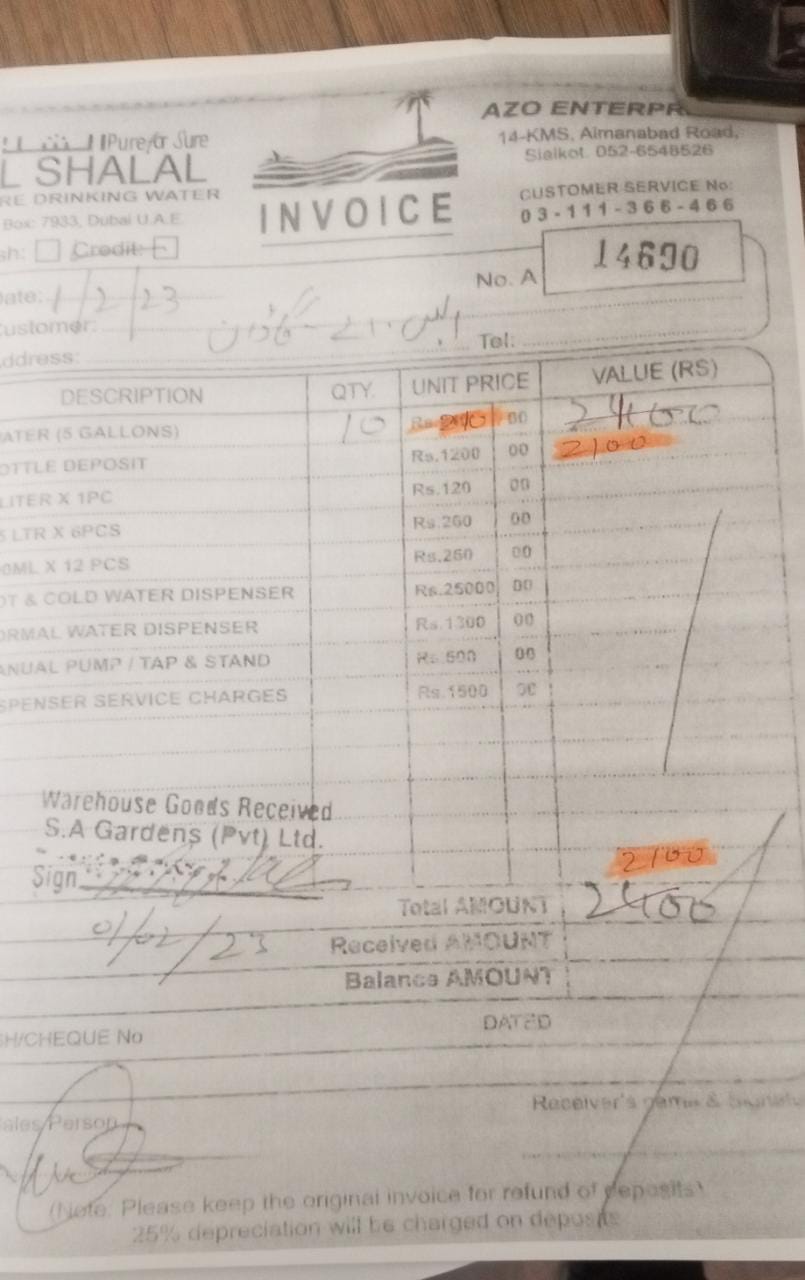 الشلال Pure for Sure
L SHALAL
RE DRINKING WATER
Box: 7933, Dubai U.A.E.
INVOICE
AZO ENTERPR
14-KMS, Aimanabad Road,
Sialkot. 052-6548526
CUSTOMER SERVICE No:
03-111-366-466
sh: Credit:
No. A 14690
Date: 1/2/23
ustomer:
ddress: Tel:
DESCRIPTION QTY. UNIT PRICE VALUE (RS)
ATER (5 GALLONS) 10 Rs. 00 2400
2100
OTTLE DEPOSIT Rs.1200 00
LITER X 1PC Rs.120 00
5 LTR X 6PCS Rs.260 00
0ML X 12 PCS Rs.260 00
OT & COLD WATER DISPENSER Rs.25000 00
ORMAL WATER DISPENSER Rs.1300 00
ANUAL PUMP / TAP & STAND Rs.500 00
SPENSER SERVICE CHARGES Rs.1500 00
Warehouse Goods Received
S.A Gardens (Pvt) Ltd.
Sign
01/02/23
2100
Total AMOUNT 2400
Received AMOUNT
Balance AMOUNT
SH/CHEQUE No DATED
ales Person
Receiver's name &
(Note: Please keep the original invoice for refund of deposits)
25% depreciation will be charged on deposits